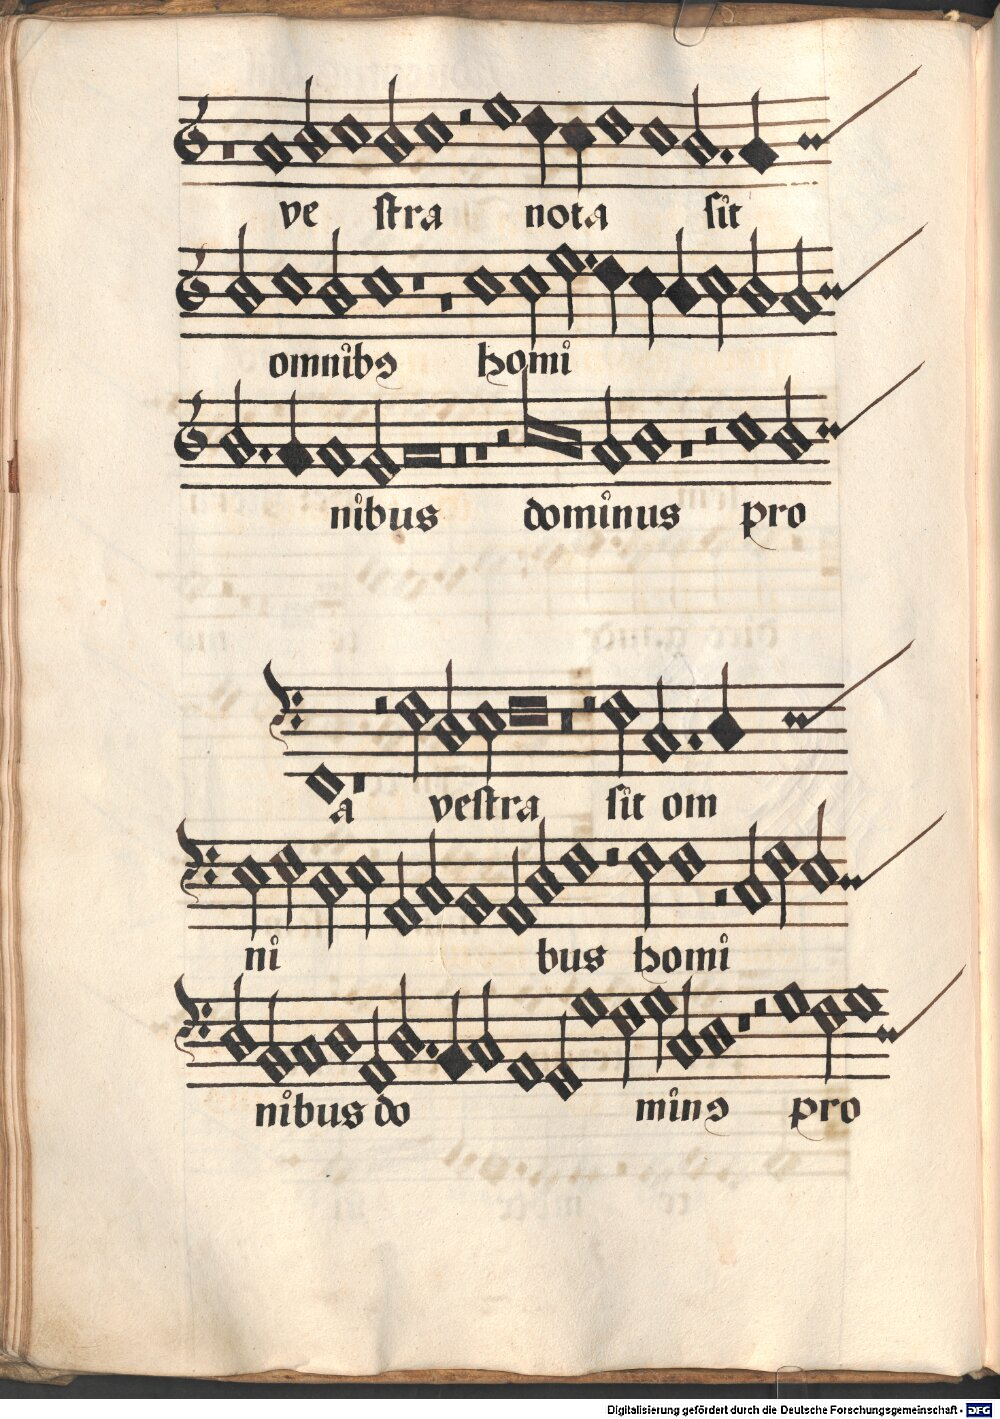 ve stra nota sit
omnibꝯ homi
nibus dominus pro
a vestra sit om
ni bus homi
nibus do minꝯ pro
Digitalisierung gefördert durch die Deutsche Forschungsgemeinschaft - DFG